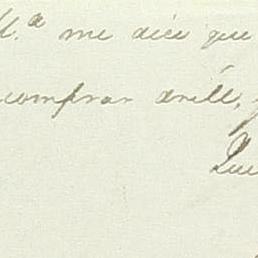 M.ª me dice que
comprar drill,